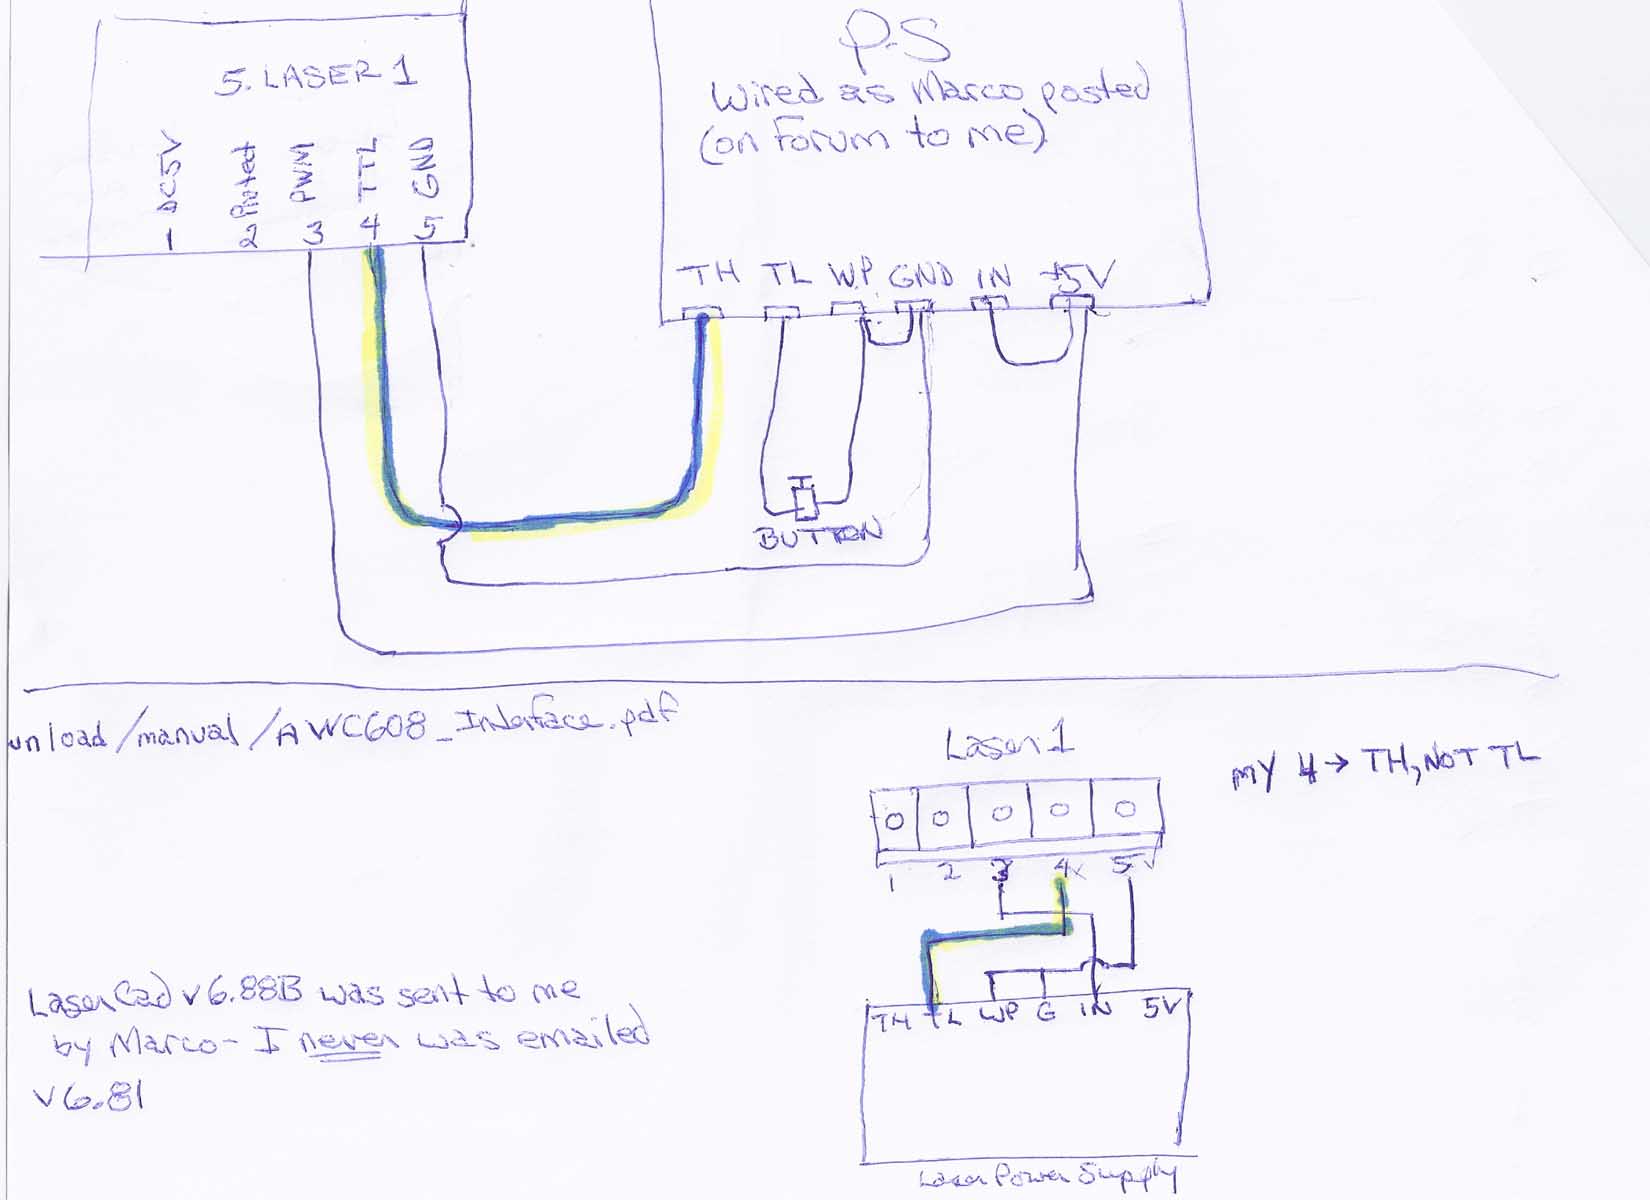 P-S
Wired as Marco posted
(on Forum to me)
5. LASER 1
1 DC5V
2 Protect
3 PWM
4 TTL
5 GND
TH TL W.P. GND IN +5V
BUTTON
unload/manual/AWC608_Interface.pdf
Laser 1
MY 4→ TH, NOT TL
1 2 3 4 5
LaserCad v6.88B was sent to me
by Marco - I never was emailed
v6.81
TH TL WP G IN 5V
Laser Power Supply